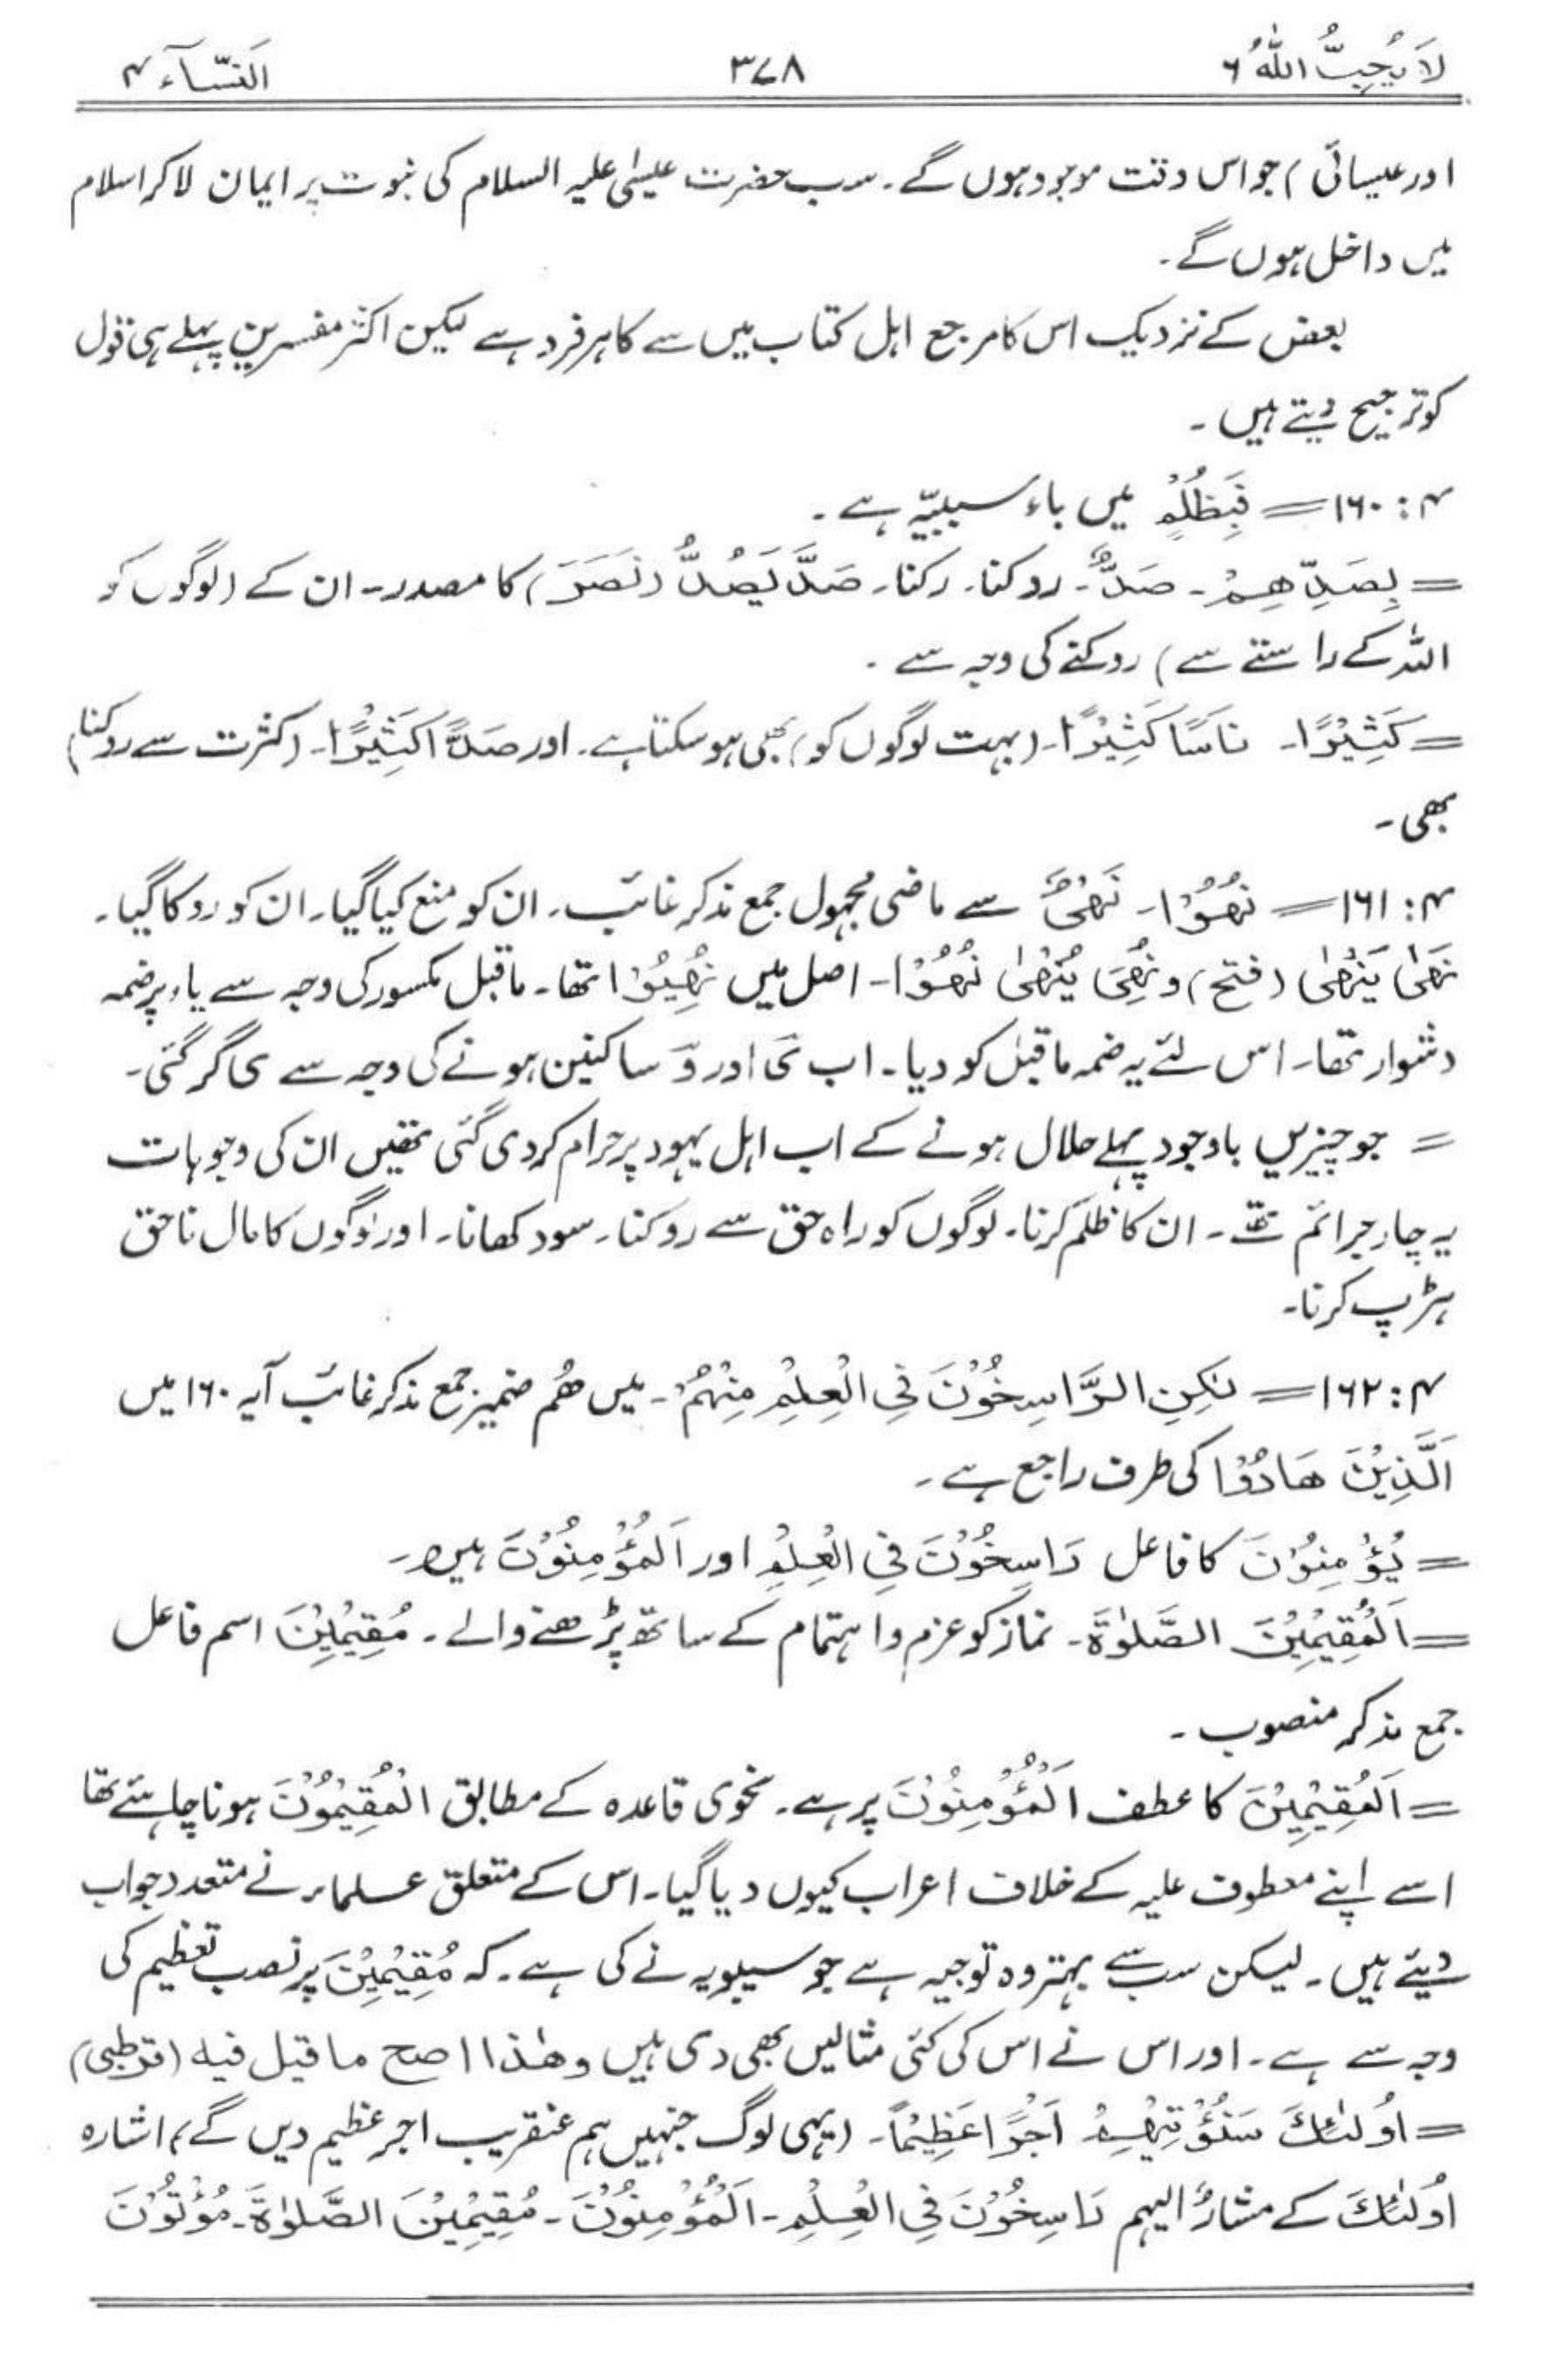 لَا يُحِبُّ اللّٰهُ ۶ ۳۷۸ اَلنِّسَآء ۴
اور عیسائی) جو اس وقت موجود ہوں گے۔ سب حضرت عیسیٰ علیہ السلام کی نبوت پر ایمان لاکر اسلام
میں داخل ہوں گے۔
بعض کے نزدیک اس کا مرجع اہل کتاب میں سے کا ہر فرد ہے لیکن اکثر مفسرین پہلے ہی قول
کو ترجیح دیتے ہیں۔
۴: ۱۶۰ = فَبِظُلْمٍ میں باء سببیّہ ہے۔
= بِصَدِّهِمْ۔ صَدٌّ۔ روکنا۔ رکنا۔ صَدَّ يَصُدُّ (نَصَرَ) کا مصدر۔ ان کے (لوگوں کو
اللہ کے راستے سے) روکنے کی وجہ سے۔
= كَثِيْرًا۔ نَاسًا كَثِيْرًا۔ (بہت لوگوں کو) بھی ہو سکتا ہے۔ اور صَدًّا كَثِيْرًا۔ (کثرت سے روکنا)
بھی۔
۴: ۱۶۱ = نُهُوْا۔ نَهْیٌ سے ماضی مجہول جمع مذکر غائب۔ ان کو منع کیا گیا۔ ان کو روکا گیا۔
نَهٰی يَنْهٰی (فتح) و نُهِیَ يُنْهٰی نُهُوْا۔ اصل میں نُهِيُوْا تھا۔ ماقبل مکسور کی وجہ سے یاء پر ضمہ
دشوار تھا۔ اس لئے یہ ضمہ ماقبل کو دیا۔ اب ی اور و ساکنین ہونے کی وجہ سے ی گر گئی۔
= جو چیزیں باوجود پہلے حلال ہونے کے اب اہل یہود پر حرام کر دی گئی تھیں ان کی وجوہات
یہ چار جرائم تھے۔ ان کا ظلم کرنا۔ لوگوں کو راہ حق سے روکنا۔ سود کھانا۔ اور لوگوں کا مال ناحق
ہڑپ کرنا۔
۴: ۱۶۲ = لٰكِنِ الرَّاسِخُوْنَ فِی الْعِلْمِ مِنْهُمْ۔ میں هُم ضمیر جمع مذکر غائب آیہ ۱۶۰ میں
اَلَّذِيْنَ هَادُوْا کی طرف راجع ہے۔
= يُؤْمِنُوْنَ کا فاعل رَاسِخُوْنَ فِی الْعِلْمِ اور اَلْمُؤْمِنُوْنَ ہیں۔
= اَلْمُقِيْمِيْنَ الصَّلٰوةَ۔ نماز کو عزم و اہتمام کے ساتھ پڑھنے والے۔ مُقِيْمِيْنَ اسم فاعل
جمع مذکر منصوب۔
= اَلْمُقِيْمِيْنَ کا عطف اَلْمُؤْمِنُوْنَ پر ہے۔ نحوی قاعدہ کے مطابق اَلْمُقِيْمُوْنَ ہونا چاہئے تھا
اسے اپنے معطوف علیہ کے خلاف اعراب کیوں دیا گیا۔ اس کے متعلق علماء نے متعدد جواب
دیئے ہیں۔ لیکن سب سے بہتر وہ توجیہ ہے جو سیبویہ نے کی ہے۔ کہ مُقِيْمِيْنَ پر نصب تعظیم کی
وجہ سے ہے۔ اور اس نے اس کی کئی مثالیں بھی دی ہیں وهٰذا اصح ما قيل فيه (قرطبی)
= اُولٰٓئِكَ سَنُؤْتِيْهِمْ اَجْرًا عَظِيْمًا۔ (یہی لوگ جنہیں ہم عنقریب اجر عظیم دیں گے) اشارہ
اُولٰٓئِكَ کے مشارٌ الیہم رَاسِخُوْنَ فِی الْعِلْمِ۔ اَلْمُؤْمِنُوْنَ۔ مُقِيْمِيْنَ الصَّلٰوةَ۔ مُؤْتُوْنَ